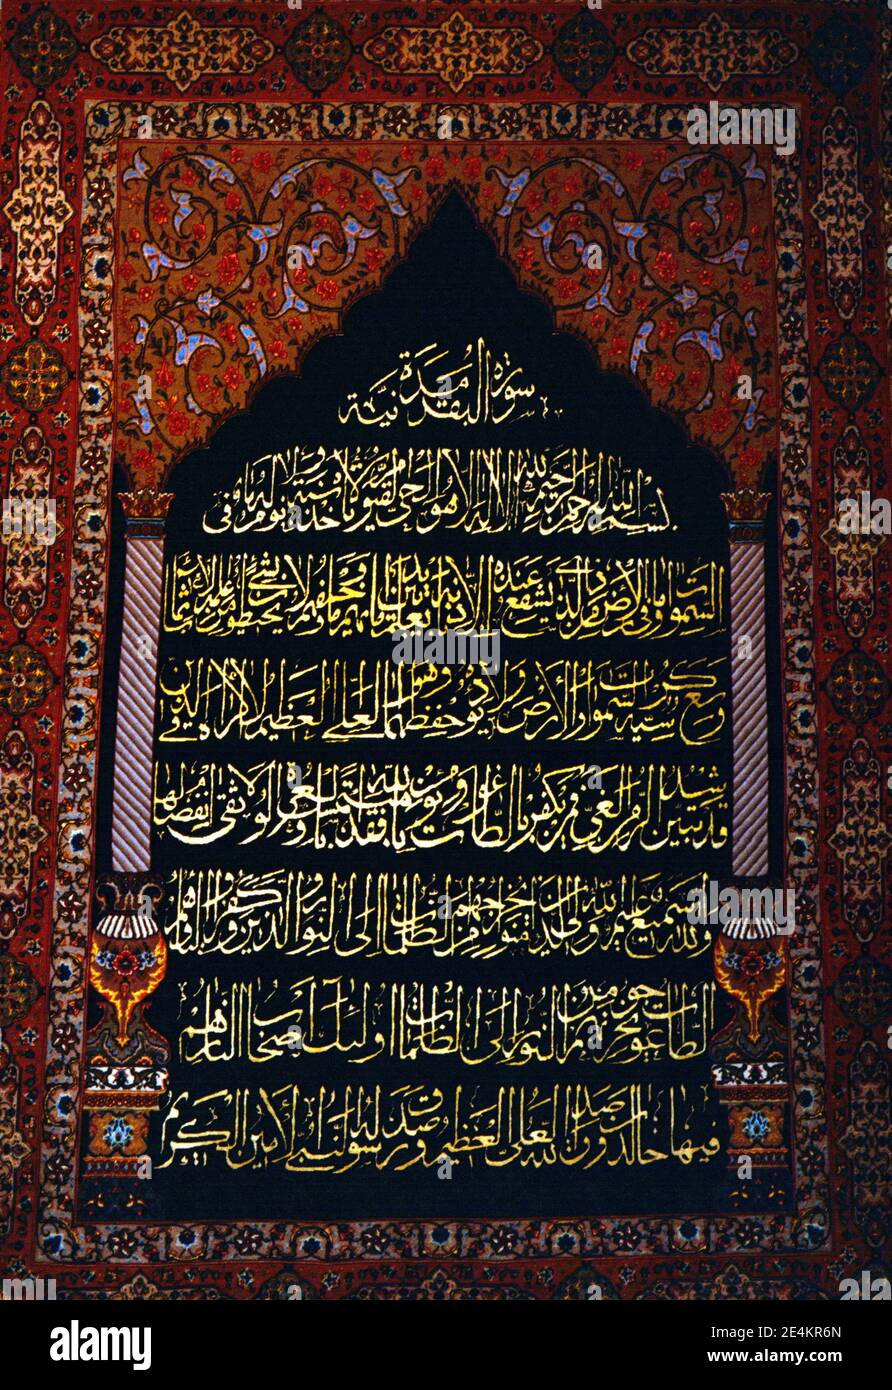 سورة البقرة مدنية
بسم الله الرحمن الرحيم الله لا إله إلا هو الحي القيوم لا تأخذه سنة ولا نوم له ما في
السموات وما في الأرض من ذا الذي يشفع عنده إلا بإذنه يعلم ما بين أيديهم وما خلفهم ولا يحيطون بشيء من علمه إلا بما شاء
وسع كرسيه السموات والأرض ولا يؤده حفظهما وهو العلي العظيم لا إكراه في الدين
قد تبين الرشد من الغي فمن يكفر بالطاغوت ويؤمن بالله فقد استمسك بالعروة الوثقى لا انفصام لها
والله سميع عليم الله ولي الذين آمنوا يخرجهم من الظلمات إلى النور والذين كفروا أولياؤهم
الطاغوت يخرجونهم من النور إلى الظلمات أولئك أصحاب النار هم
فيها خالدون صدق الله العلي العظيم وصدق رسوله النبي الأمين الكريم
alamy
Image ID: 2E4KR6N
www.alamy.com